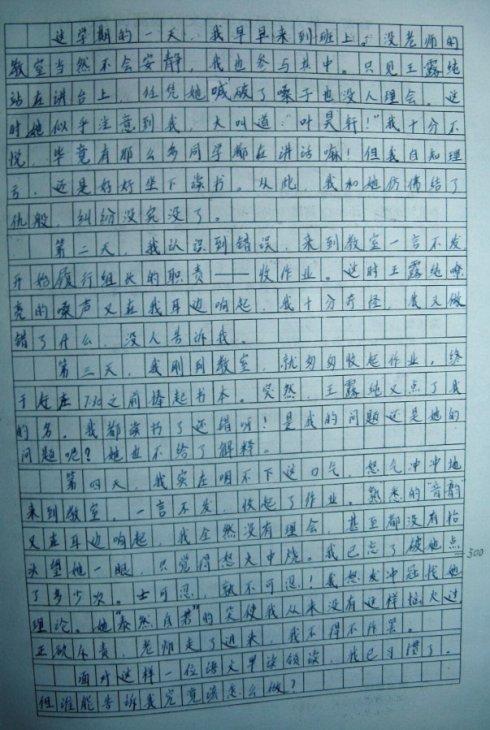 这学期的一天，我早早来到班上。没老师的
教室当然不会安静，我也参与其中。只见王露纯
站在讲台上，任凭她喊破了嗓子也没人理会。这
时她似乎注意到我，大叫道："叶昊轩！"我十分不
悦，毕竟有那么多同学都在讲话嘛！但我自知理
亏，还是好好坐下读书。从此，我和她仿佛结了
仇般，纠纷没完没了。
第二天，我认识到错误，来到教室一言不发，
开始履行组长的职责——收作业。这时王露纯响
亮的嗓声又在我耳边响起，我十分奇怪，我又做
错了什么，没人告诉我。
第三天，我刚到教室，就匆匆收起作业，终
于赶在7:20之前捧起书本。突然，王露纯又点了我
的名。我都读书了还错听！是我的问题还是她的
问题呢？她也不给个解释。
第四天，我实在咽不下这口气，怒气冲冲地
来到教室，一言不发，收起了作业。熟悉的"音韵"
又在耳边响起，我全然没有理会，甚至都没有抬
头望她一眼，只觉得怒火中烧。我已忘了被她点
=500
了多少次。士可忍，孰不可忍！我怒发冲冠找她
理论。她"泰然自若"的笑使我从来没有这样恼火过
正欲斥责，老师走了进来，我不得不作罢。
面对这样一位语文早读领读，我已
但谁能告诉我究竟该怎么做？